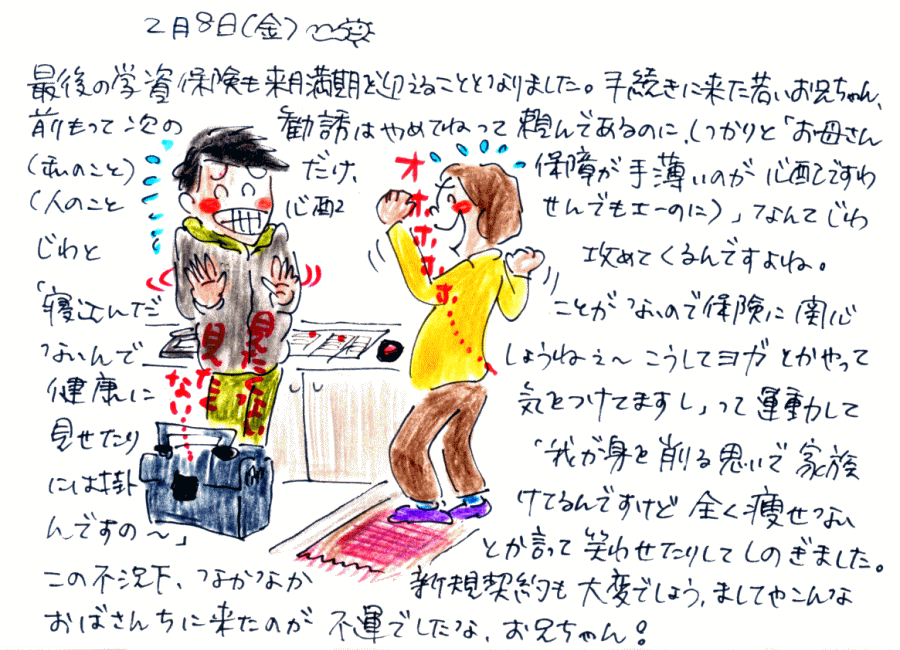 2月8日(金)
最後の学資保険も来月満期を迎えることとなりました。手続きに来た若いお兄ちゃん、
前もって次の 勧誘はやめてねって頼んであるのに、しっかりと「お母さん
(私のこと) だけ、 保障が手薄いのが心配ですわ
(人のこと 心配 せんでもエーのに)」なんてじわ
じわと 攻めてくるんですよね。
「寝込んだ ことがないので保険に関心
ないんで しょうねぇ〜 こうしてヨガとかやって
健康に 気をつけてますし」って運動して
見せたり 「我が身を削る思いで家族
には掛 けてるんですけど全く痩せない
んですの〜」 とか言って笑わせたりしてしのぎました。
この不況下、なかなか 新規契約も大変でしょう、ましてやこんな
おばさんちに来たのが 不運でしたな、お兄ちゃん!
オホホホホ
見たくない
見たくない